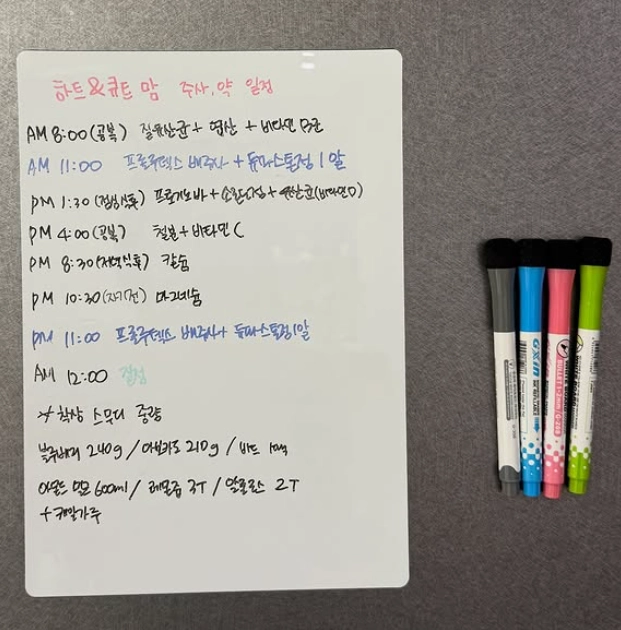 하트&큐트 맘 주사, 약 일정
AM 8:00 (공복) 질유산균 + 엽산 + 비타민 B군
AM 11:00 프롤루텍스 배주사 + 듀파스톤정 1알
PM 1:30 (점심식후) 프로기노바 + 소론도정 + 유산균(비타민D)
PM 4:00 (공복) 철분 + 비타민 C
PM 8:30 (저녁식후) 칼슘
PM 10:30 (자기전) 마그네슘
PM 11:00 프롤루텍스 배주사 + 듀파스톤정 1알
AM 12:00
착상 스무디 용량
블루베리 240g / 아보카도 210g / 비트
아몬드 600ml / 레몬즙 3T / 알룰로스 2T
+ 케일가루